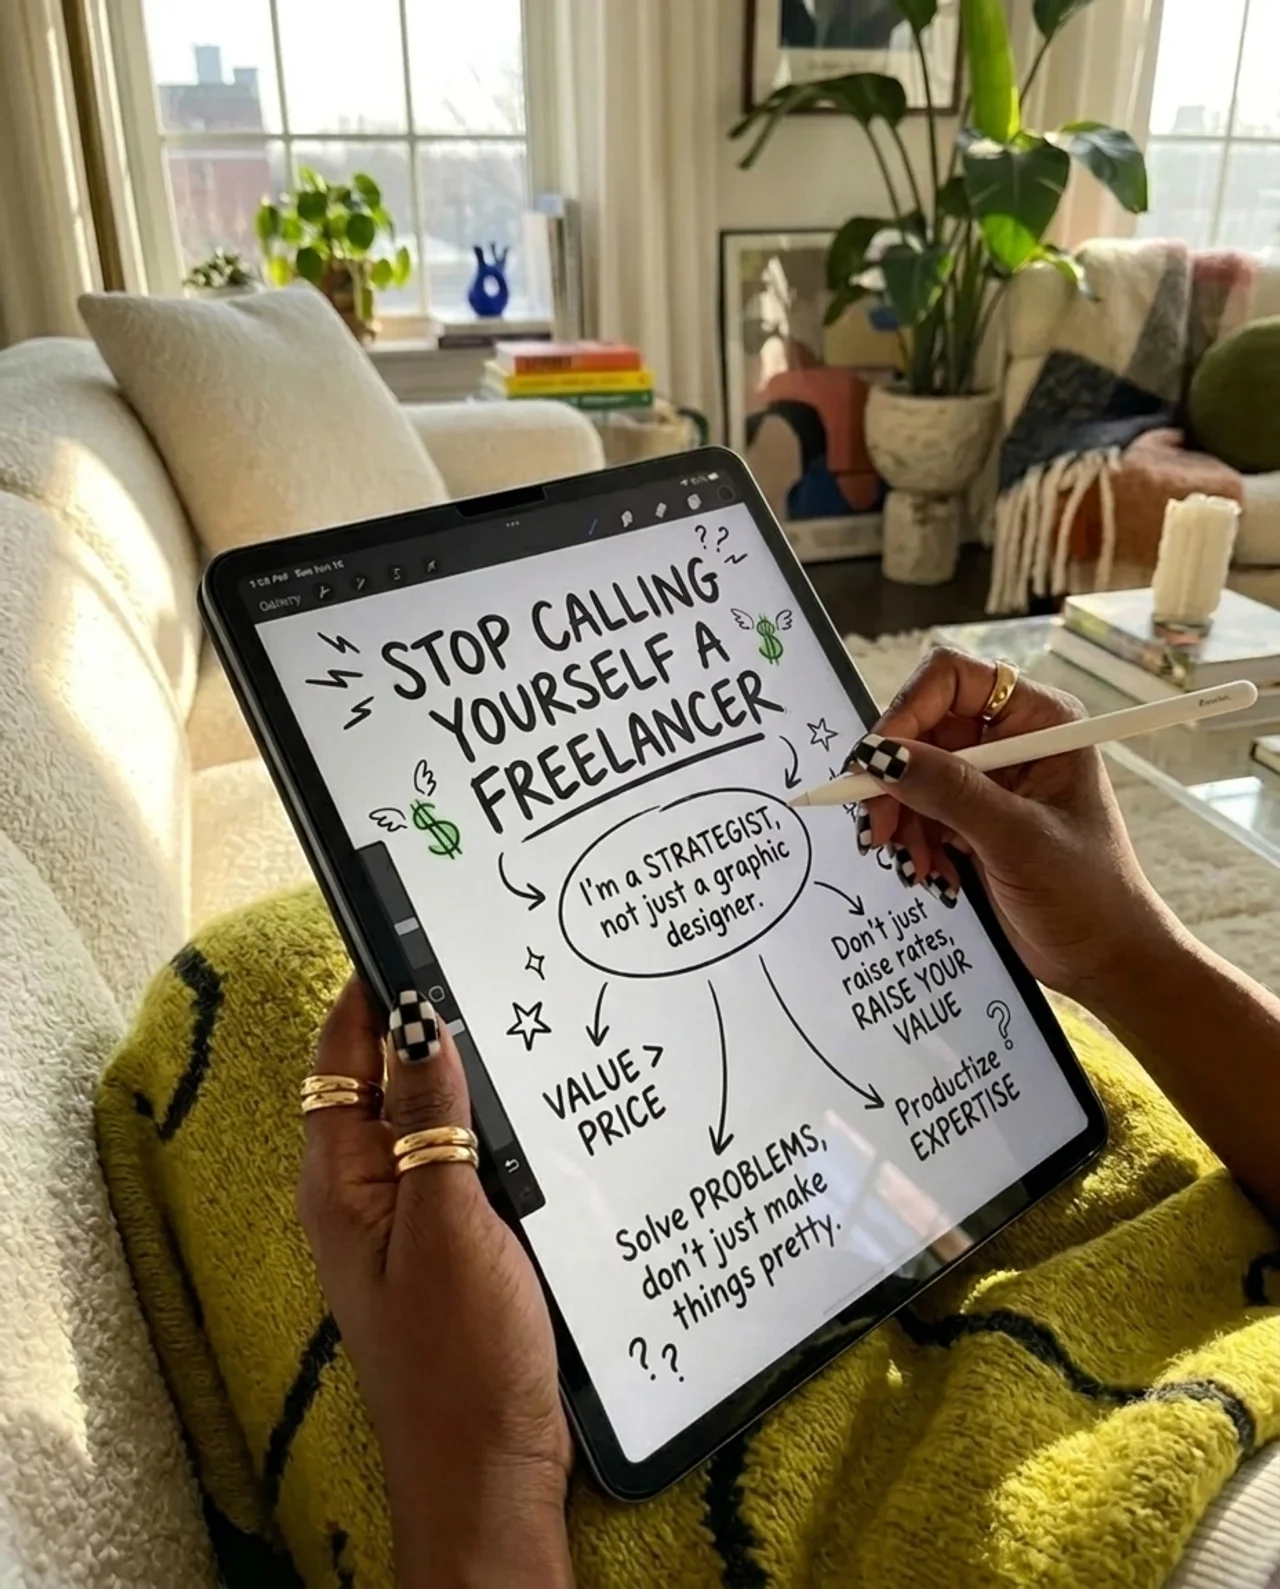 Gallery
S
? ?
STOP CALLING
YOURSELF A
FREELANCER
$
$
I'm a STRATEGIST,
not just a graphic
designer.
Don't just
raise rates,
RAISE YOUR
VALUE
VALUE >
PRICE
?
Productize
EXPERTISE
Solve PROBLEMS,
don't just make
things pretty.
? ?